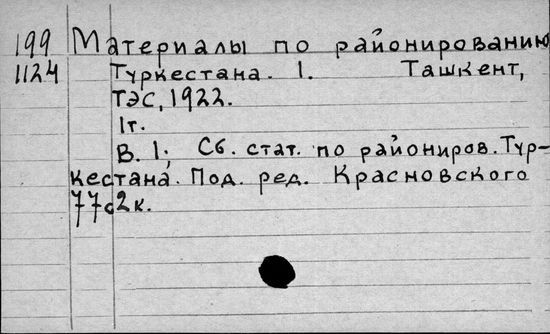 199 Материалы по районированию
1124 Туркестана. 1. Ташкент,
ТЭС, 1922.
1т.
В. 1; Сб. стат. по райониров. Тур-
кестана. Под. ред. Красновского
77с 2к.